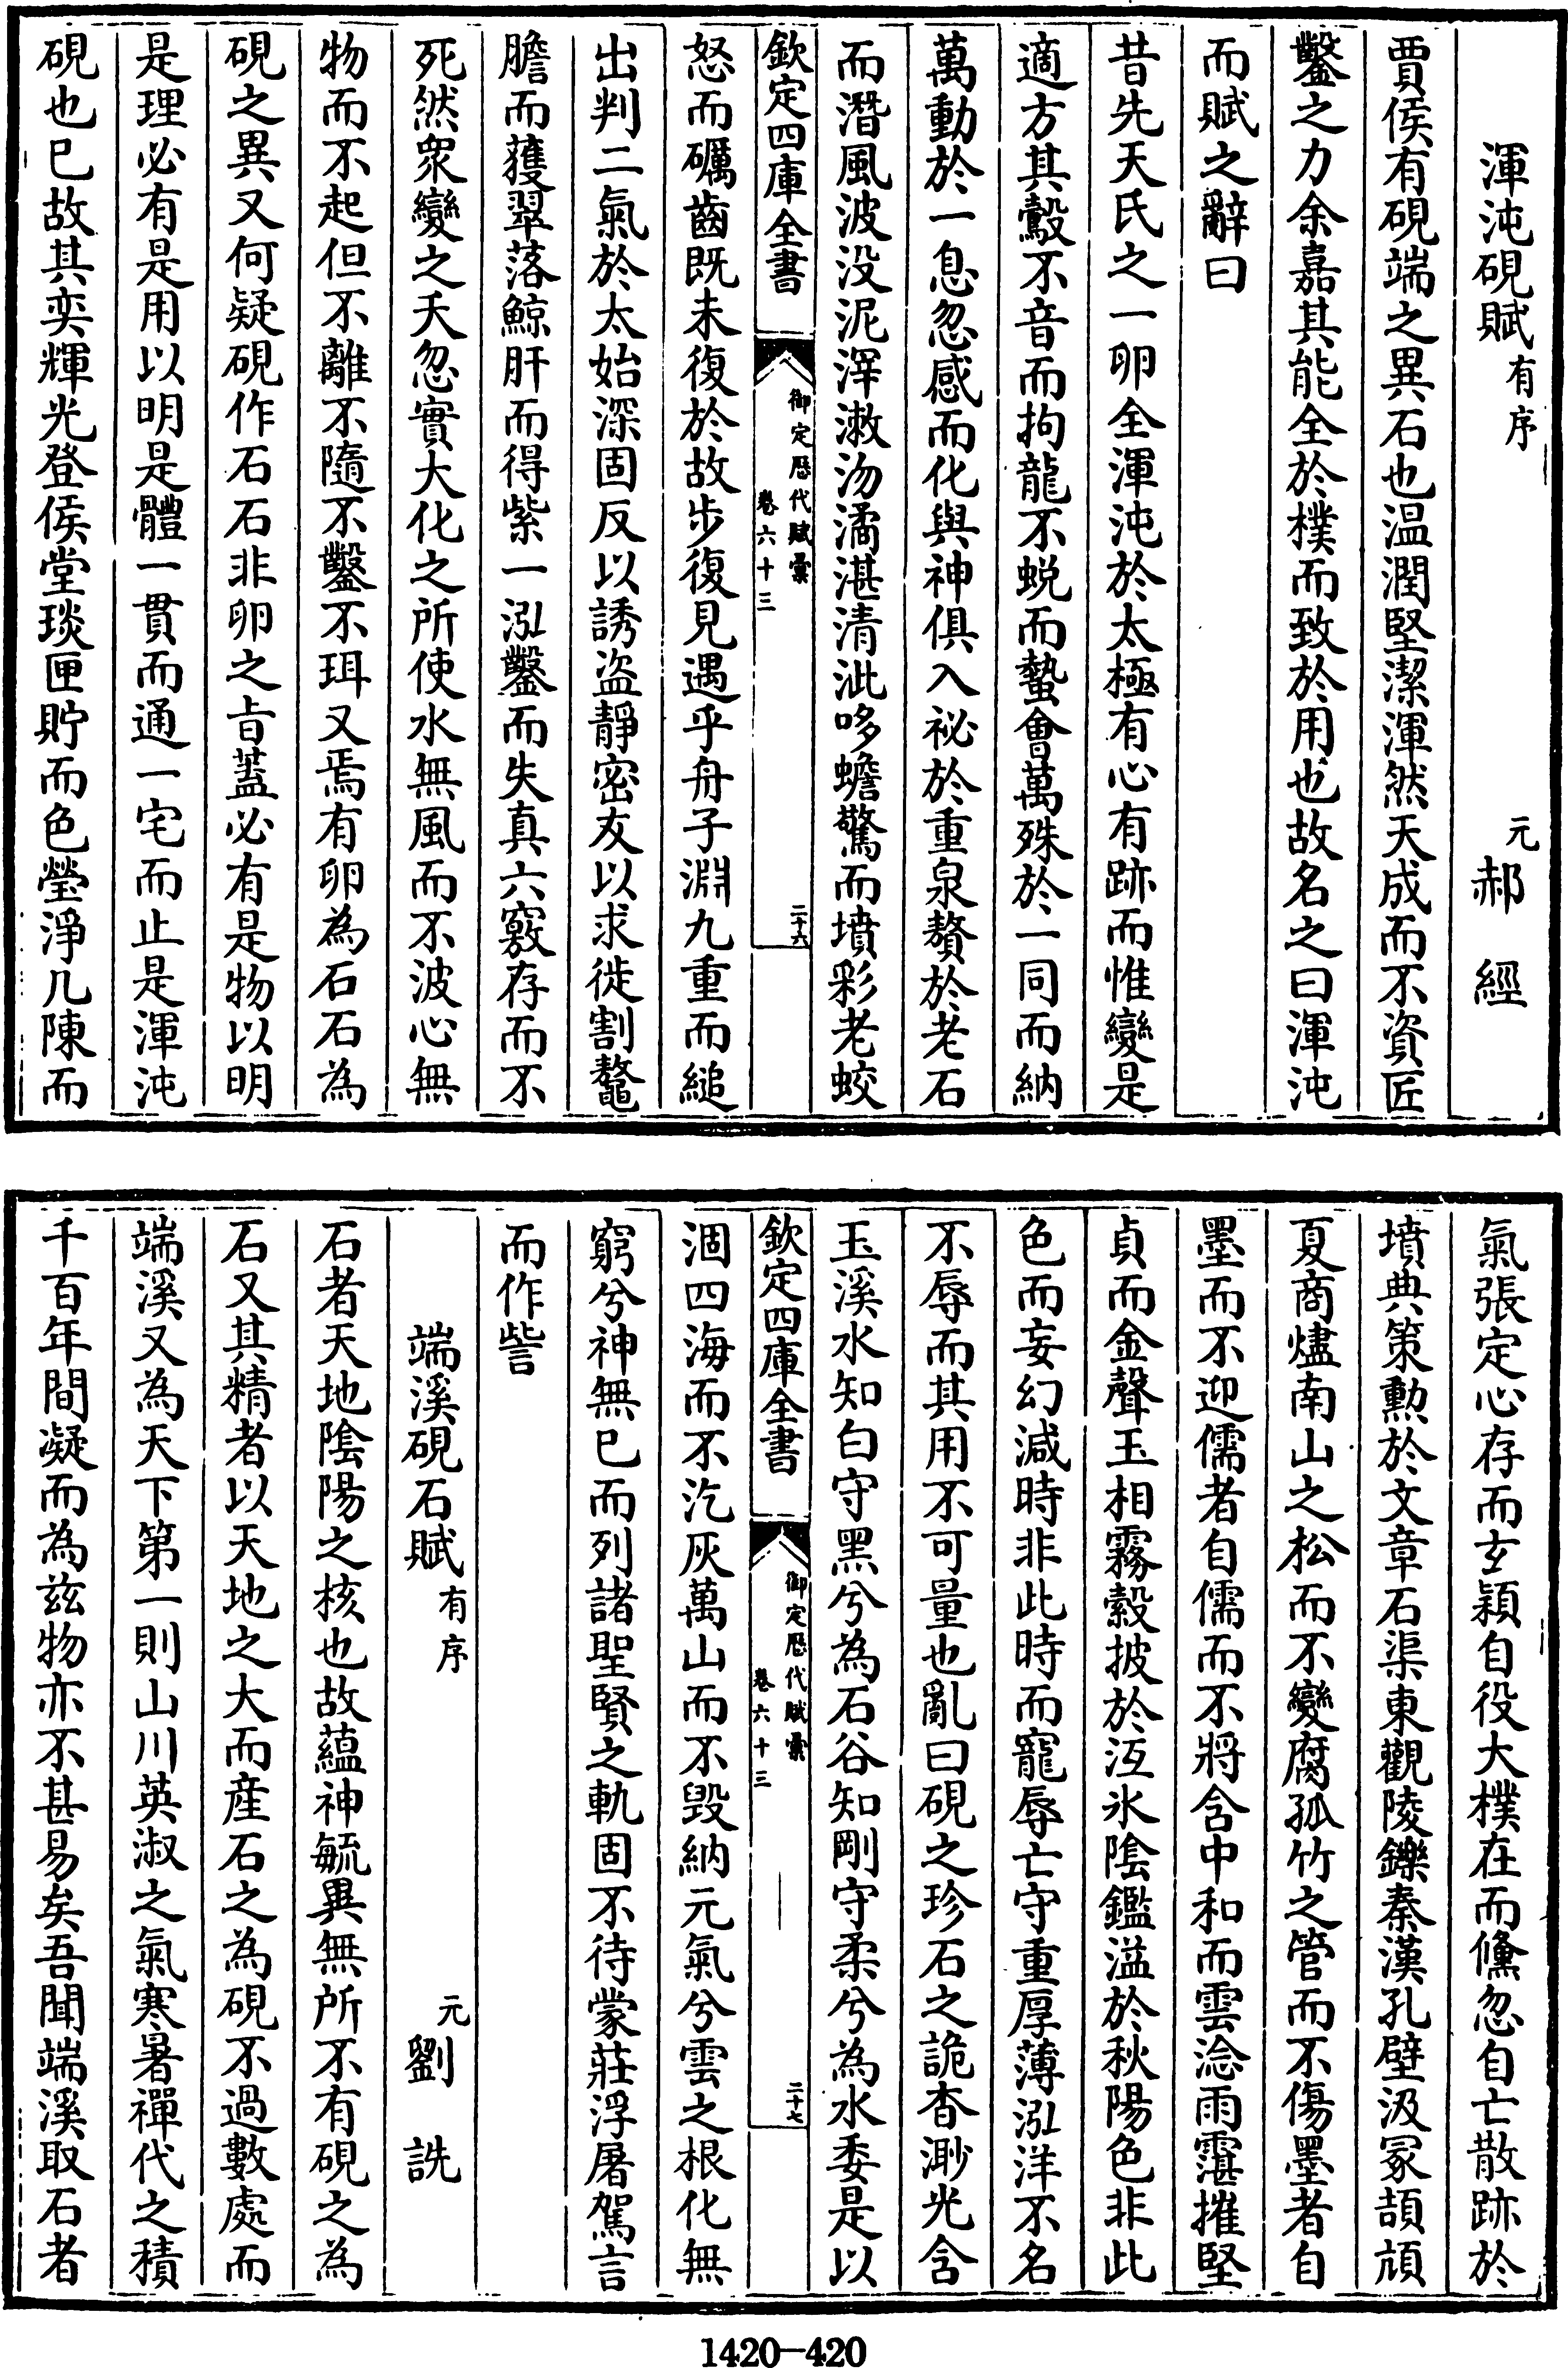 渾沌硯賦有序 元郝經
賈侯有硯端之異石也温潤堅潔渾然天成而不資匠
鑿之力余嘉其能全於樸而致於用也故名之曰渾沌
而賦之辭曰
昔先天氏之一卵全渾沌於太極有心有跡而惟變是
適方其鷇不音而拘龍不蜕而蟄會萬殊於一同而納
萬動於一息忽感而化與神俱入祕於重泉贅於老石
而潛風波没泥滓漱沕潏湛清泚哆蟾驚而墳彩老蛟
欽定四庫全書 御定歴代賦彙 卷六十三 二十六
怒而礪齒既未復於故步復見遇乎舟子淵九重而縋
出判二氣於太始深固反以誘盜靜密友以求徙割鼇
膽而獲翠落鯨肝而得紫一泓鑿而失真六竅存而不
死然衆變之夭忽實大化之所使水無風而不波心無
物而不起但不離不隨不鑿不珥又焉有卵為石石為
硯之異又何疑硯作石石非卵之㫖葢必有是物以明
是理必有是用以明是體一貫而通一宅而止是渾沌
硯也已故其奕輝光登侯堂琰匣貯而色瑩淨几陳而
氣張定心存而𤣥穎自役大樸在而儵忽自亡散跡於
墳典策勲於文章石渠東觀陵鑠秦漢孔壁汲冢頡頏
夏商燼南山之松而不變腐孤竹之管而不傷墨者自
墨而不迎儒者自儒而不將含中和而雲淰雨霮摧堅
貞而金聲玉相霧縠披於沍氷陰鑑溢於秋陽色非此
色而妄幻減時非此時而寵辱亡守重厚薄泓洋不名
不辱而其用不可量也亂曰硯之珍石之詭杳渺光含
玉溪水知白守黑兮為石谷知剛守柔兮為水委是以
欽定四庫全書 御定歴代賦彙 卷六十三 二十七
涸四海而不汔灰萬山而不毁納元氣兮雲之根化無
窮兮神無已而列諸聖賢之軌固不待蒙莊浮屠駕言
而作訾
端溪硯石賦有序 元劉詵
石者天地陰陽之核也故蘊神毓異無所不有硯之為
石又其精者以天地之大而産石之為硯不過數處而
端溪又為天下第一則山川英淑之氣寒暑禪代之積
千百年間凝而為兹物亦不甚易矣吾聞端溪取石者
1420-420